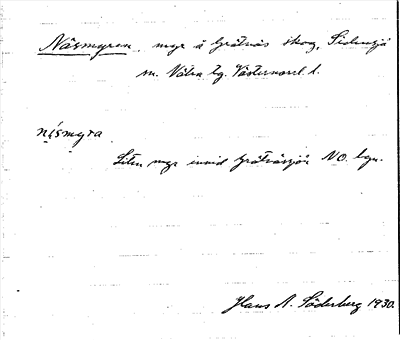 Näsmyren, myr å Gråtnäs skog, Sidensjö
sn. Nätra tg. Västernorrl. l.
nismyra
Liten myr invid Gråtnässjön NO. byn.
Hans A. Söderberg 1930.